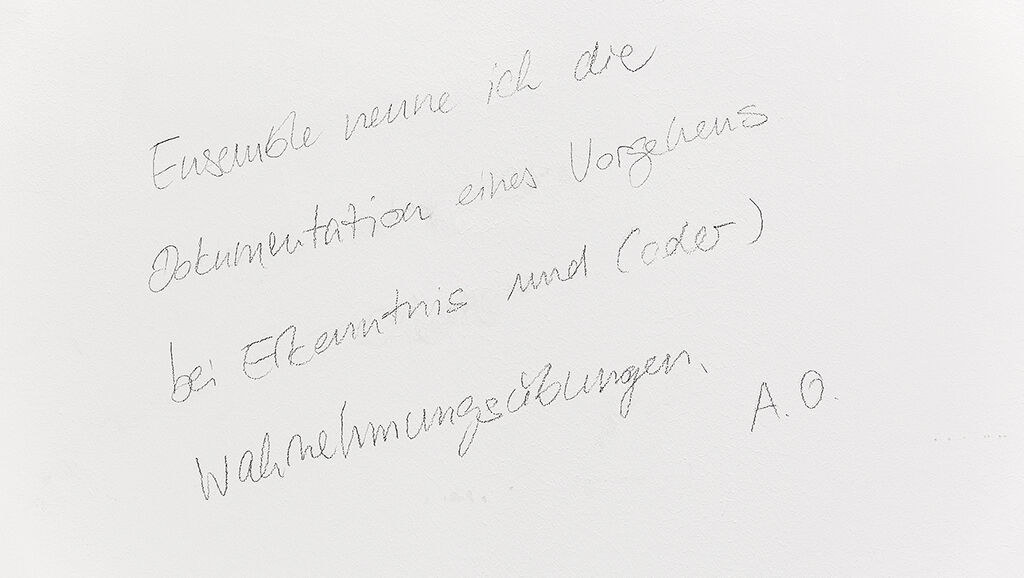 Ensemble nenne ich die
Dokumentation eines Vorgehens
bei Erkenntnis und (oder)
Wahrnehmungsübungen.
A. O.